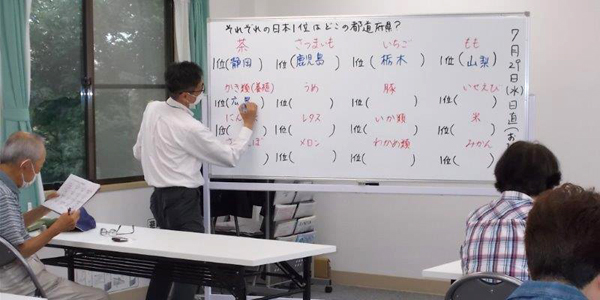 それぞれの日本1位はどこの都道府県?
茶 さつまいも いちご もも
1位(静岡) 1位(鹿児島) 1位(栃木) 1位(山梨)
かき類(養殖) うめ 豚 いせえび
1位(広島 1位( ) 1位( ) 1位( )
にん レタス いか類 米
1位( ) 1位( ) 1位( ) 1位( )
メロン わかめ類 みかん
) 1位( ) 1位( ) 1位( )
7月29日(水)日直(お